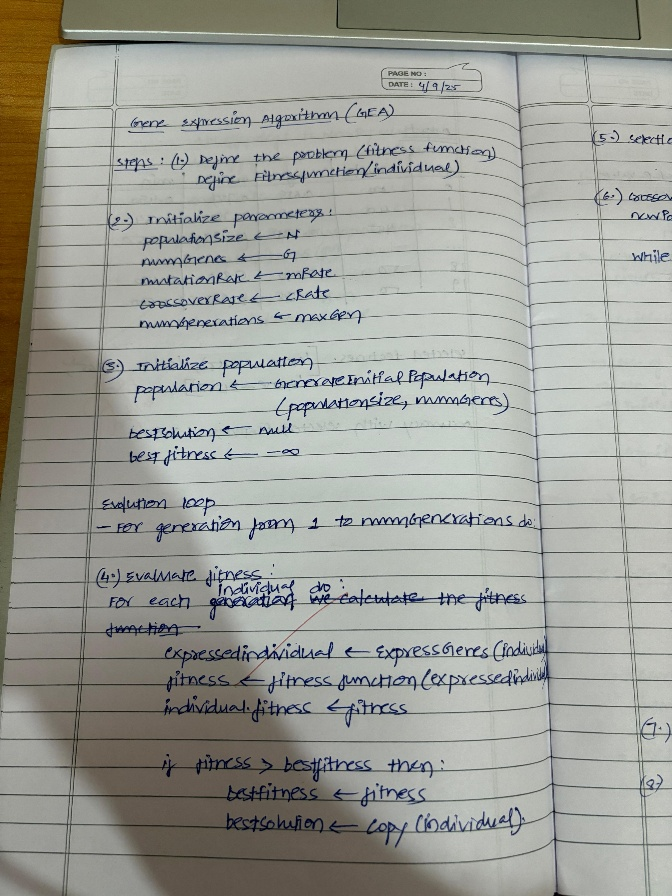 PAGE NO :
DATE : 4/9/25
Gene Expression Algorithm (GEA)
Steps : (1.) Define the problem (fitness function)
Define Fitnessfunction(individual)
(2.) Initialize parameters :
populationSize ← N
numGenes ← G
mutationRate ← mRate
crossoverRate ← cRate
numGenerations ← maxGen
(3.) Initialize population
population ← GenerateInitialPopulation
(populationsize, numGenes)
bestsolution ← null
best fitness ← -∞
Evolution loop
- For generation from 1 to numGenerations do:
(4.) Evaluate fitness :
individual do :
For each generation we calculate the fitness
function
expressedindividual ← ExpressGenes (individual
fitness ← fitness function (expressedindivid
individual.fitness ← fitness
if fitness > bestfitness then :
bestfitness ← fitness
bestsolution ← copy (individual).
(5.) selectio
(6.) crossov
newPo
while
(7.)
(8)